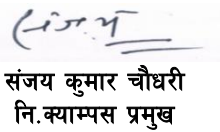 संजय
संजय कुमार चौधरी
नि.क्याम्पस प्रमुख